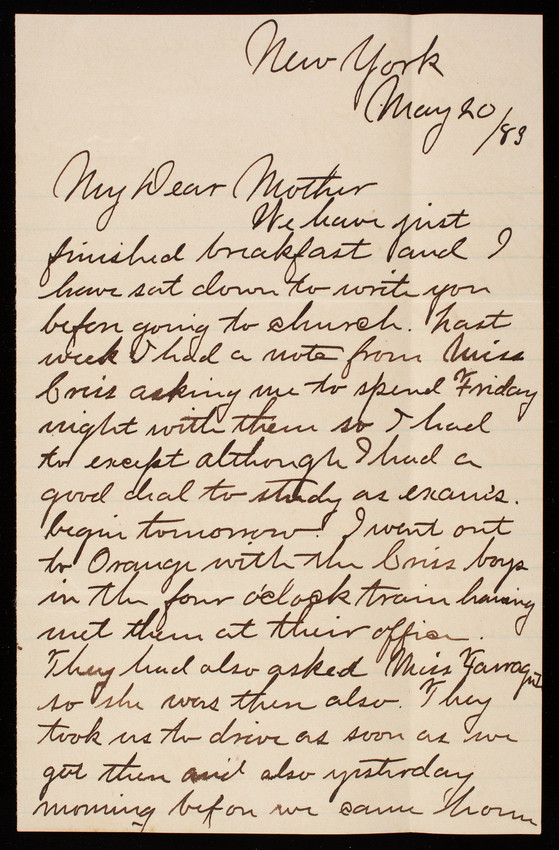 New York
May 20/83
My Dear Mother
We have just
finished breakfast and I
have sat down to write you
before going to church. Last
week I had a note from Miss
Criss asking me to spend Friday
night with them so I had
to except although I had a
good deal to study as exams.
begin tomorrow. I went out
to Orange with the Criss boys
in the four o'clock train having
met them at their office.
They had also asked Miss Farragut
so she was there also. They
took us to drive as soon as we
got there and also yesterday
morning before we came home